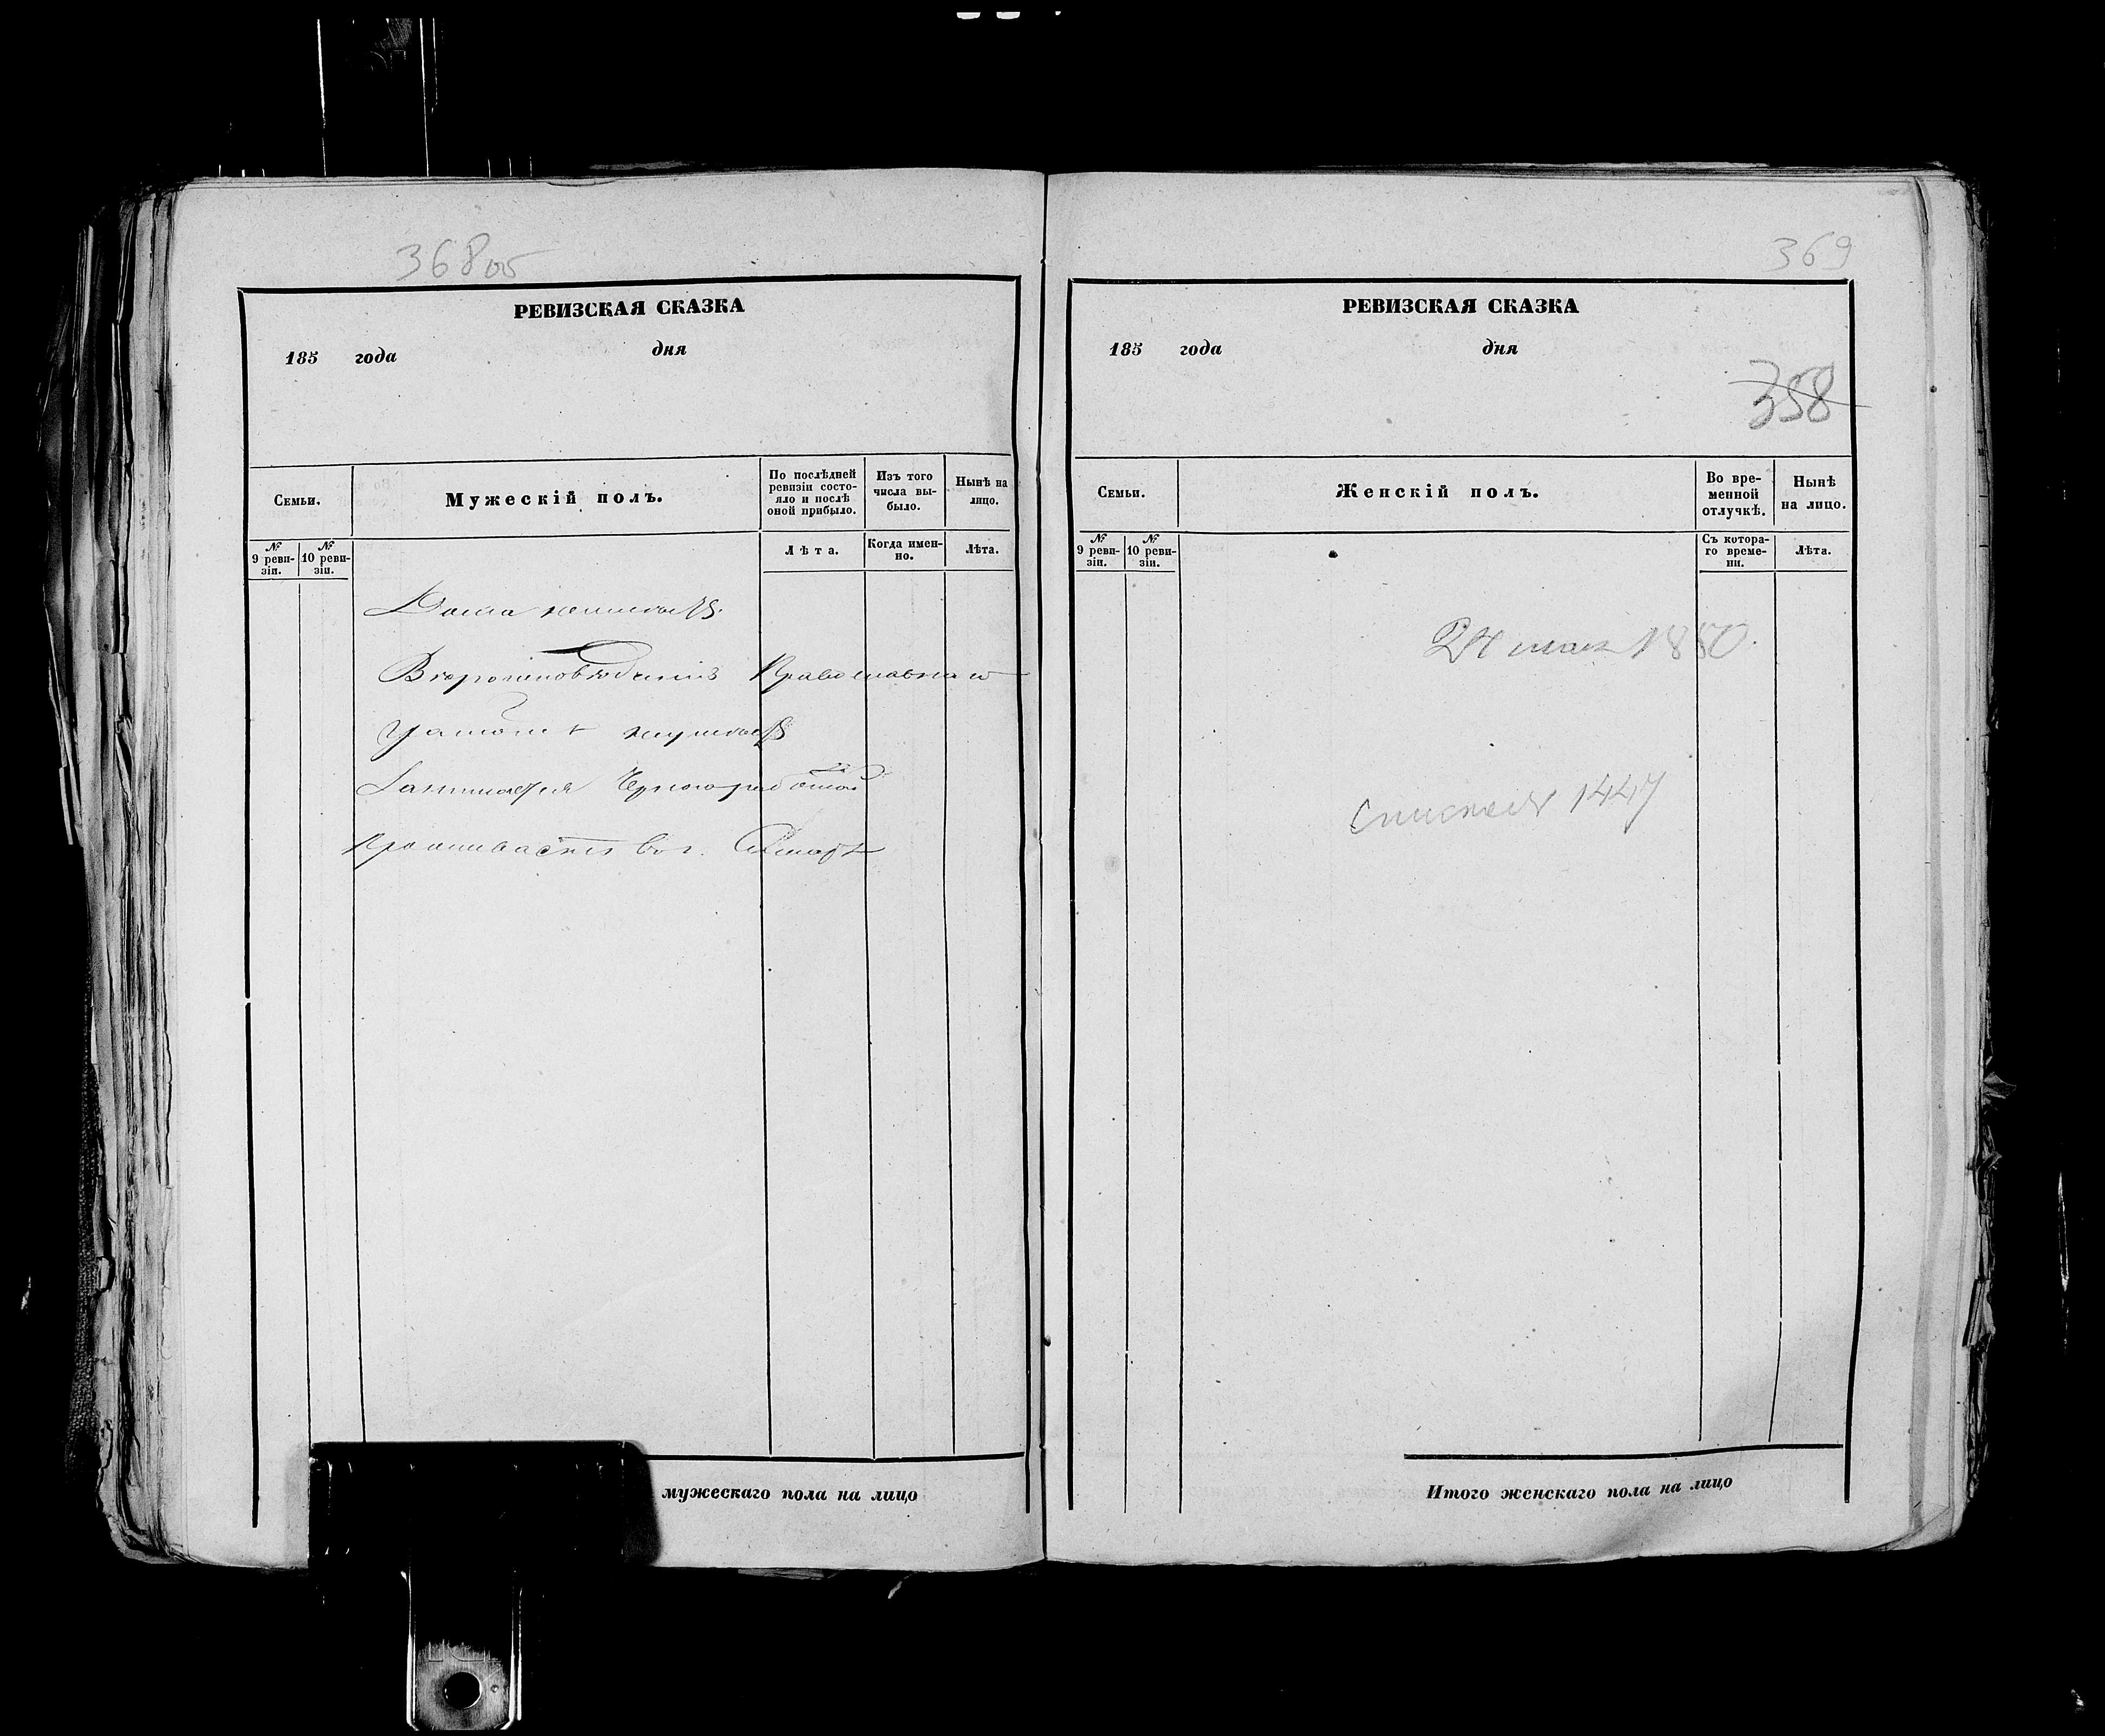 368 об
РЕВИЗСКАЯ СКАЗКА
185 года дня
Семьи.
Мужескій полъ.
По послѣдней ревизіи состо-
яло и послѣ оной прибыло.
Изъ того числа вы-
было.
Нынѣ на лицо.
№ 9 реви-
зіи.
№ 10 реви-
зіи.
Лѣта.
Когда имен-
но.
Лѣта.
Дома неимѣетъ
Вѣроисповѣданія Православнаго
неимѣетъ
Занимается Черноработой
Проживаетъ в г.
мужескаго пола на лицо
369
РЕВИЗСКАЯ СКАЗКА
185 года дня
358
Семьи.
Женскій полъ.
Во вре-
менной отлучкѣ.
Нынѣ на лицо.
№ 9 реви-
зіи.
№ 10 реви-
зіи.
Съ котора-
го време-
ни.
Лѣта.
24 мая 1850.
1447
Итого женскаго пола на лицо